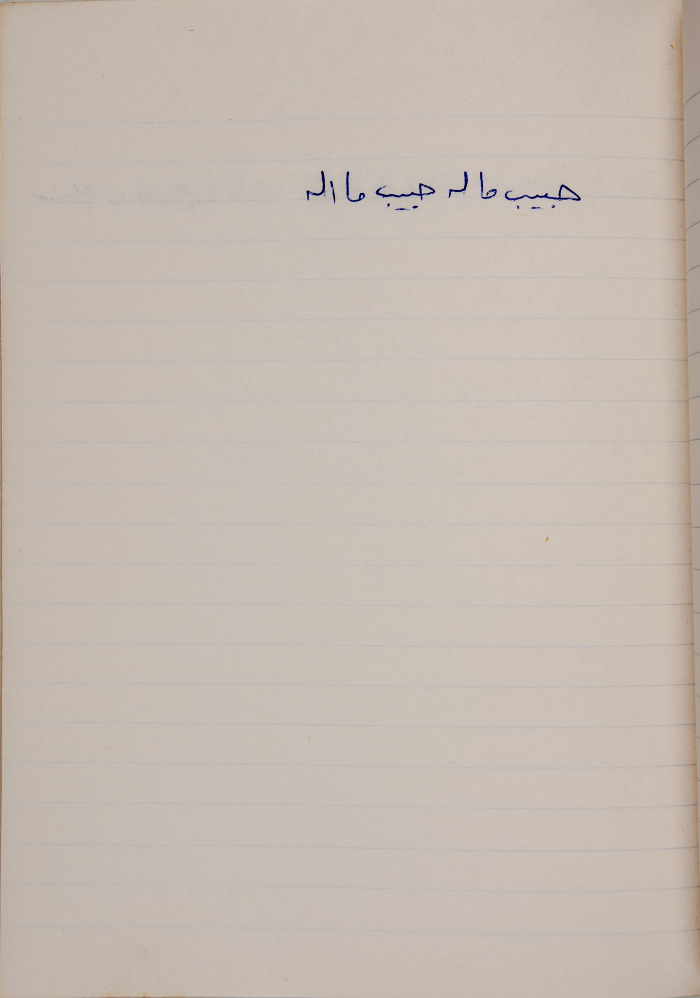 حبيب ما له حبيب ما اله